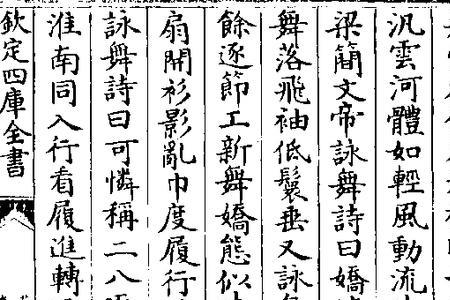 汎雲河體如輕風動流
梁簡文帝詠舞詩曰嬌
舞落飛袖低鬟垂又詠
餘逐節工新舞嬌態似
扇開衫影亂巾度履行
詠舞詩曰可憐稱二八
淮南同入行看履進轉
欽定四庫全書